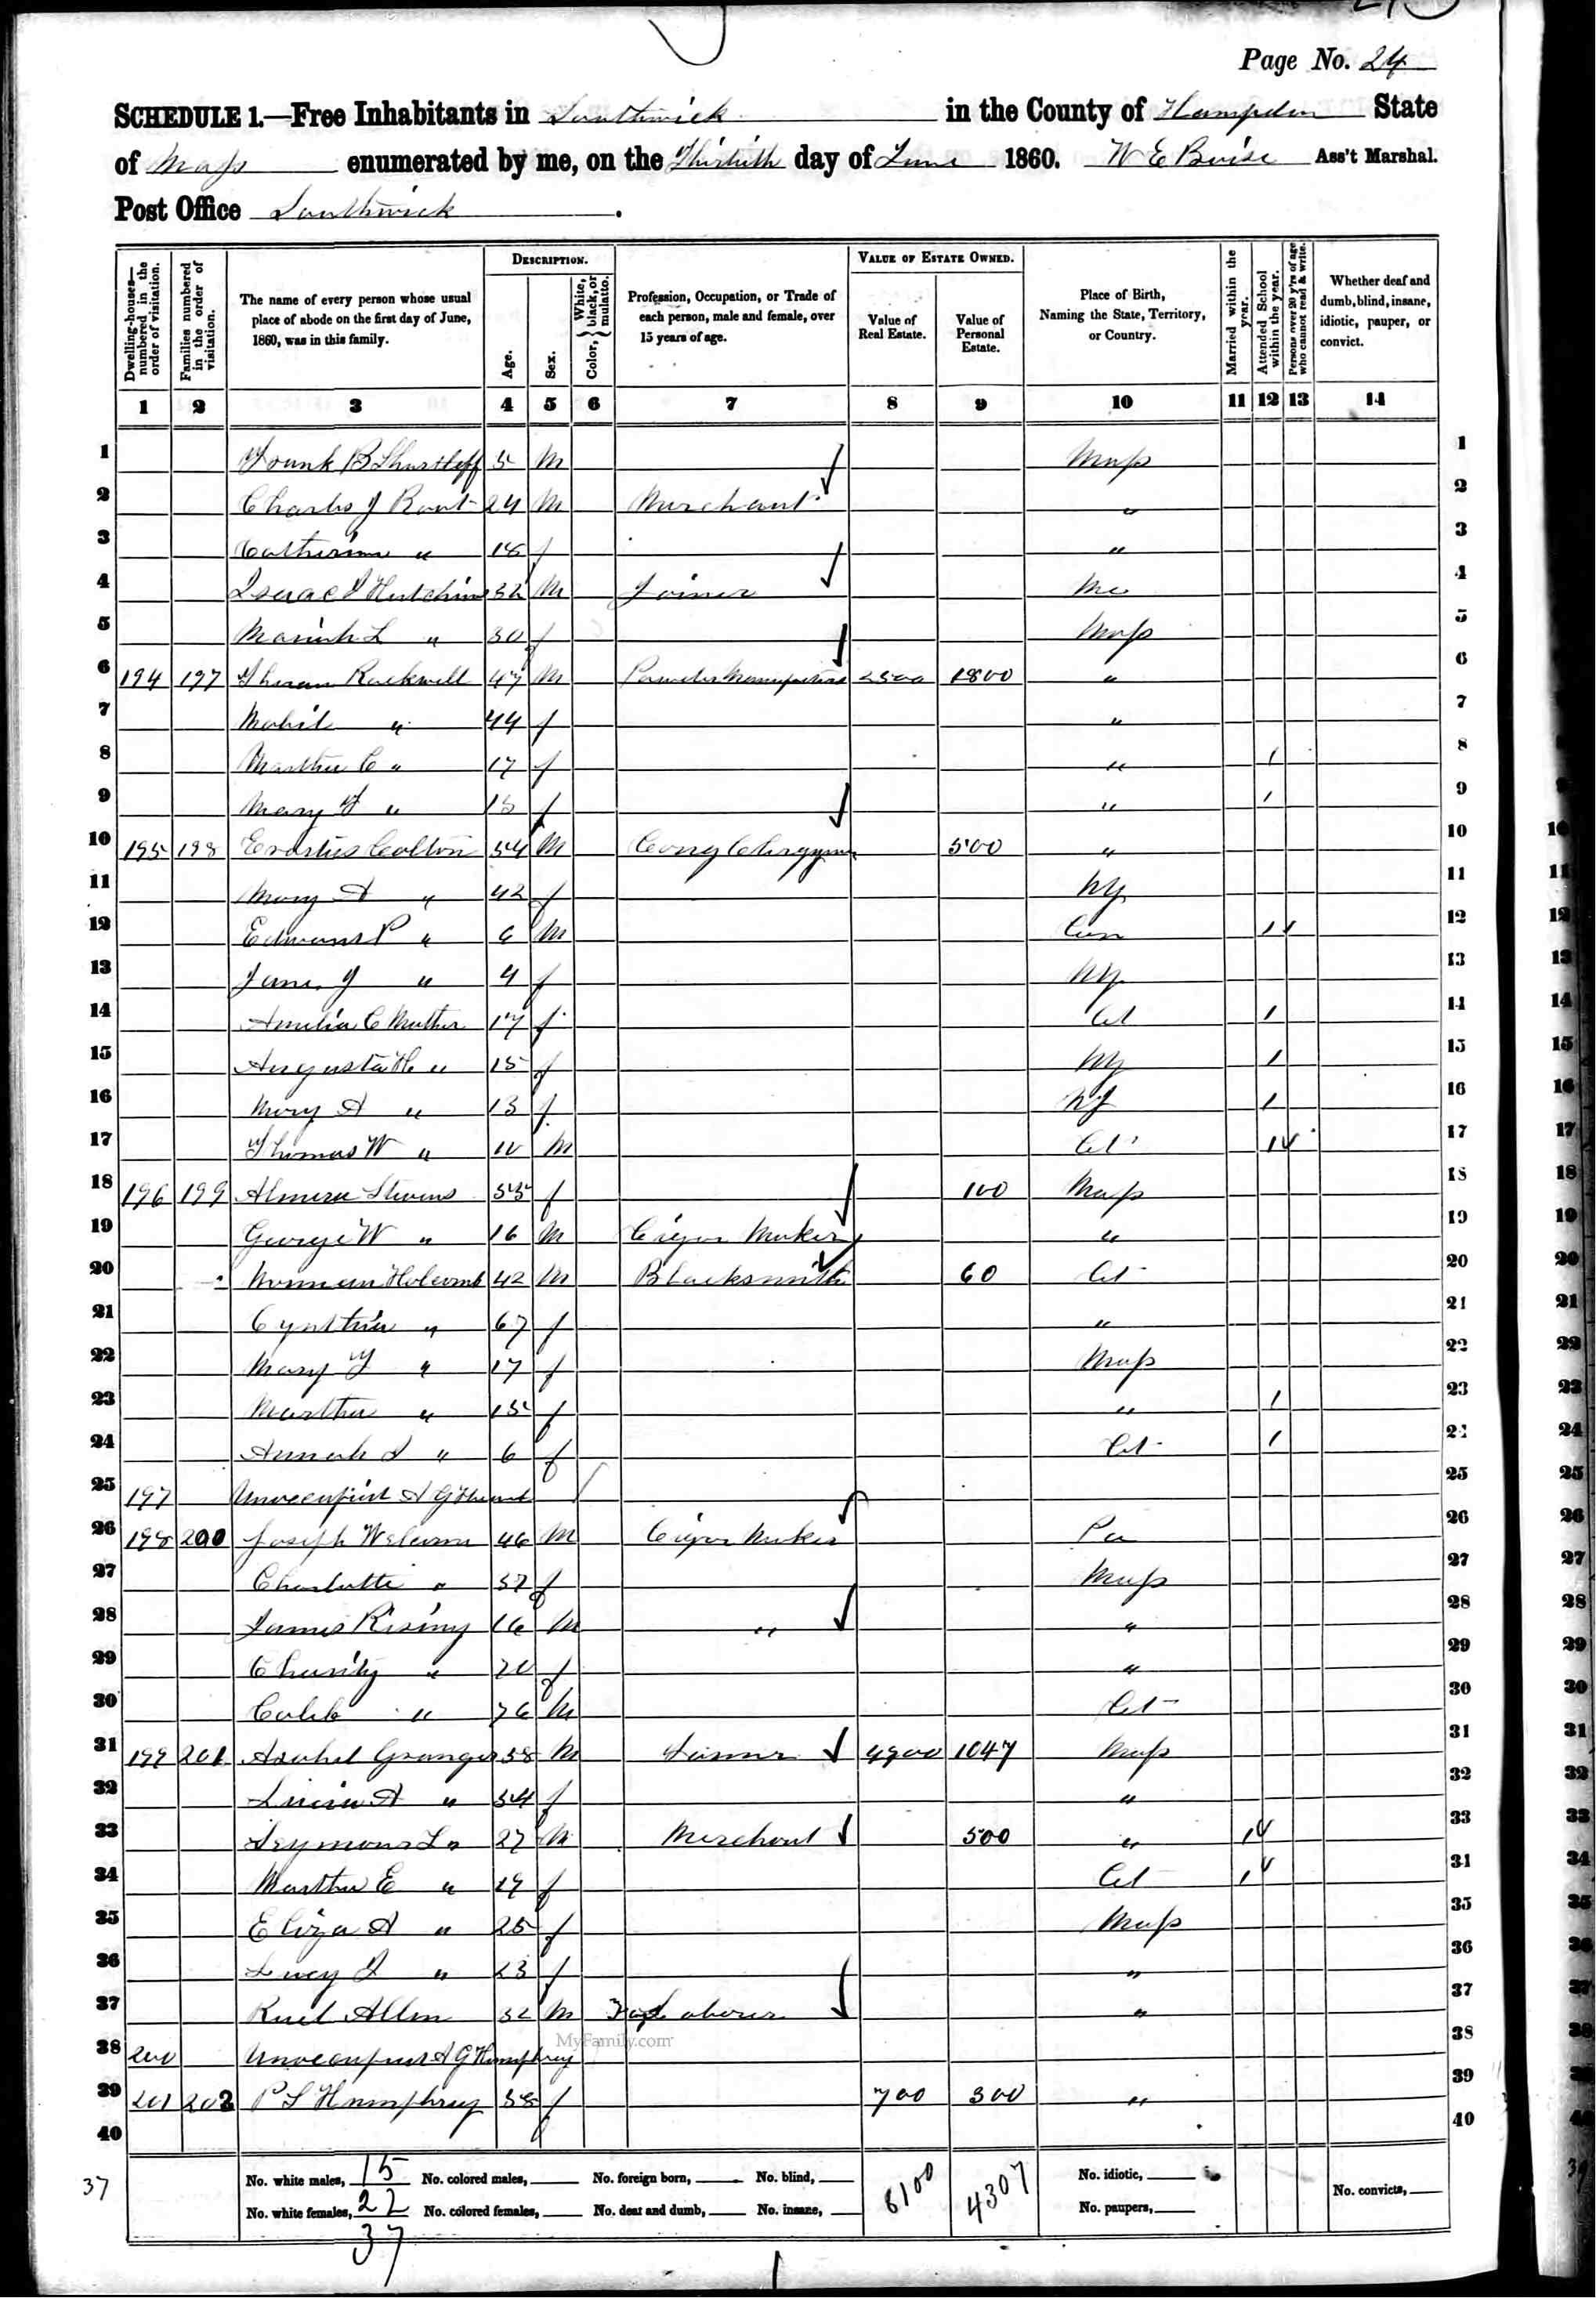 Page No. 24
SCHEDULE 1.—Free Inhabitants in Southwick in the County of Hampden State
of Mass enumerated by me, on the Thirtieth day of June 1860. W E Boise Ass't Marshal.
Post Office Southwick.
Dwelling-houses—numbered in the order of visitation.
Families numbered in the order of visitation.
The name of every person whose usual place of abode on the first day of June, 1860, was in this family.
DESCRIPTION.
Age.
Sex.
Color, { White, black, or mulatto.
Profession, Occupation, or Trade of each person, male and female, over 15 years of age.
VALUE OF ESTATE OWNED.
Value of Real Estate.
Value of Personal Estate.
Place of Birth, Naming the State, Territory, or Country.
Married within the year.
Attended School within the year.
Persons over 20 y'rs of age who cannot read & write.
Whether deaf and dumb, blind, insane, idiotic, pauper, or convict.
1 2 3 4 5 6 7 8 9 10 11 12 13 14
1 Frank B Shurtleff 5 M Mass 1
2 Charles J Root 24 M Merchant " 2
3 Catherine " 18 f " 3
4 Isaac Hutchins 32 M Joiner Me 4
5 Mariah L " 30 f Mass 5
6 194 197 Rockwell 47 M Powder Manufacturer 2500 1800 " 6
7 " 44 f " 7
8 Martha C " 17 f " 1 8
9 Mary " 13 f " 1 9
10 195 198 Erastus Colton 54 M Cong Clergyman 500 " 10
11 Mary A " 42 f NY 11
12 Edward P " 6 M Con 1 12
13 Jane J " 4 f NY 13
14 Amelia C Mather 17 f Ct 1 14
15 Augusta H " 15 f NY 1 15
16 Mary A " 13 f NJ 1 16
17 Thomas W " 10 M Ct 1 17
18 196 199 Almira Stevens 55 f 100 Mass 18
19 George W " 16 M Cigar Maker " 19
20 Norman Holcomb 42 M Blacksmith 60 Ct 20
21 Cynthia " 67 f " 21
22 Mary " 17 f Mass 22
23 Martha " 15 f " 1 23
24 Annah " 6 f Ct 1 24
25 197 Unoccupied A G 25
26 198 200 Joseph 46 M Cigar Maker Pa 26
27 Charlotte " 37 f Mass 27
28 James Rising 16 M " " 28
29 Charity " 20 f " 29
30 Caleb " 76 M Ct 30
31 199 201 Asahel Granger 58 M Farmer 4900 1047 Mass 31
32 A " 54 f " 32
33 Seymour L " 27 M Merchant 500 " 1 33
34 Martha E " 19 f Ct 1 34
35 Eliza A " 25 f Mass 35
36 Lucy " 23 f " 36
37 Ruel Allen 32 M Laborer " 37
38 200 Unoccupied A G Humphrey 38
39 201 202 P L Humphrey 58 f 700 300 " 39
40 40
MyFamily.com
37
No. white males, 15 No. colored males, No. foreign born, No. blind, 8100 4307 No. idiotic,
No. white females, 22 No. colored females, No. deaf and dumb, No. insane, No. paupers, No. convicts,
37